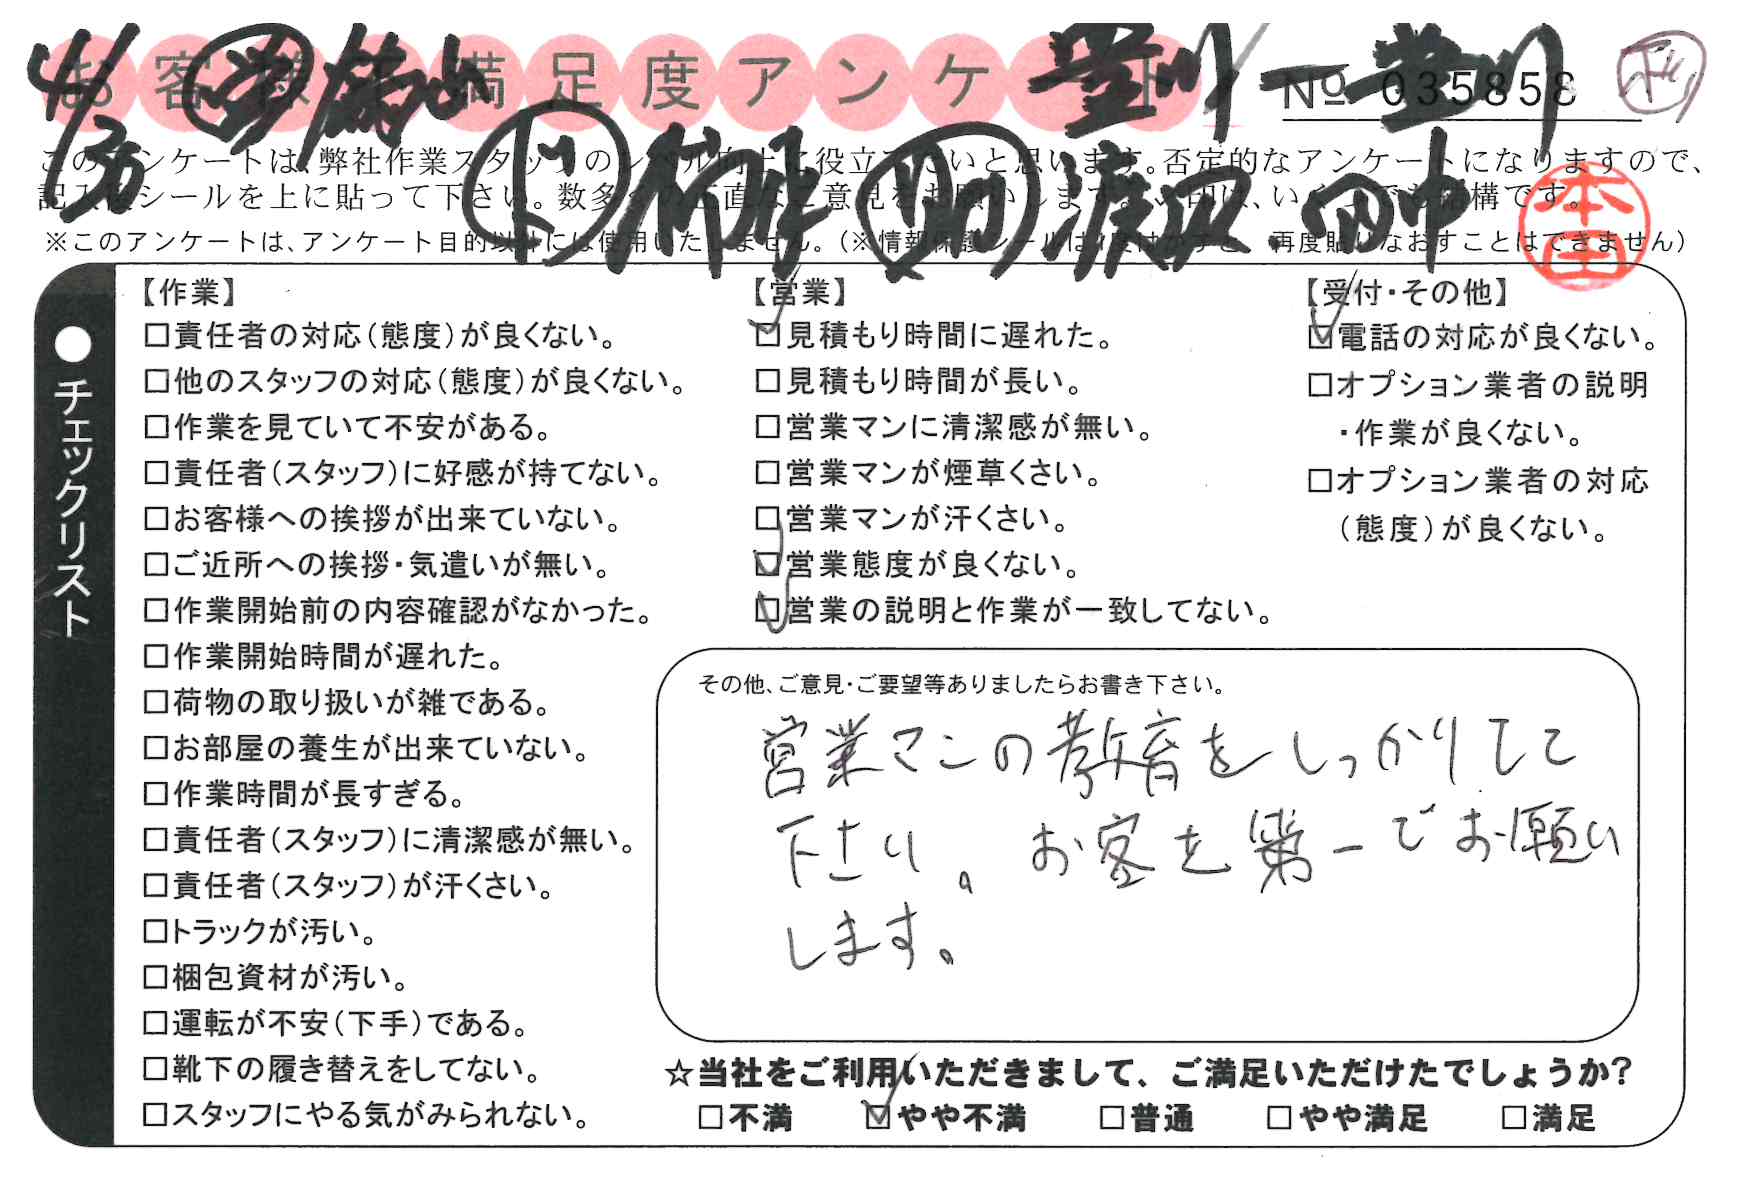 お客様 満足度アンケート
№ 035858
4/3
豊川 — 豊川
田中
本田
このアンケートは、弊社作業スタッフのレベル向上に役立てたいと思います。否定的なアンケートになりますので、
記入後シールを上に貼って下さい。数多くの正直なご意見をお願いします。✓印は、いくつでも結構です。
※このアンケートは、アンケート目的以外には使用いたしません。(※情報保護シールは1度付かすと、再度貼りなおすことはできません)
●チェックリスト
【作業】
□責任者の対応(態度)が良くない。
□他のスタッフの対応(態度)が良くない。
□作業を見ていて不安がある。
□責任者(スタッフ)に好感が持てない。
□お客様への挨拶が出来ていない。
□ご近所への挨拶・気遣いが無い。
□作業開始前の内容確認がなかった。
□作業開始時間が遅れた。
□荷物の取り扱いが雑である。
□お部屋の養生が出来ていない。
□作業時間が長すぎる。
□責任者(スタッフ)に清潔感が無い。
□責任者(スタッフ)が汗くさい。
□トラックが汚い。
□梱包資材が汚い。
□運転が不安(下手)である。
□靴下の履き替えをしてない。
□スタッフにやる気がみられない。
【営業】
☑見積もり時間に遅れた。
□見積もり時間が長い。
□営業マンに清潔感が無い。
□営業マンが煙草くさい。
□営業マンが汗くさい。
☑営業態度が良くない。
☑営業の説明と作業が一致してない。
【受付・その他】
☑電話の対応が良くない。
□オプション業者の説明
・作業が良くない。
□オプション業者の対応
(態度)が良くない。
その他、ご意見・ご要望等ありましたらお書き下さい。
営業マンの教育をしっかりして
下さい。お客を第一でお願い
します。
☆当社をご利用いただきまして、ご満足いただけたでしょうか?
□不満 ☑やや不満 □普通 □やや満足 □満足